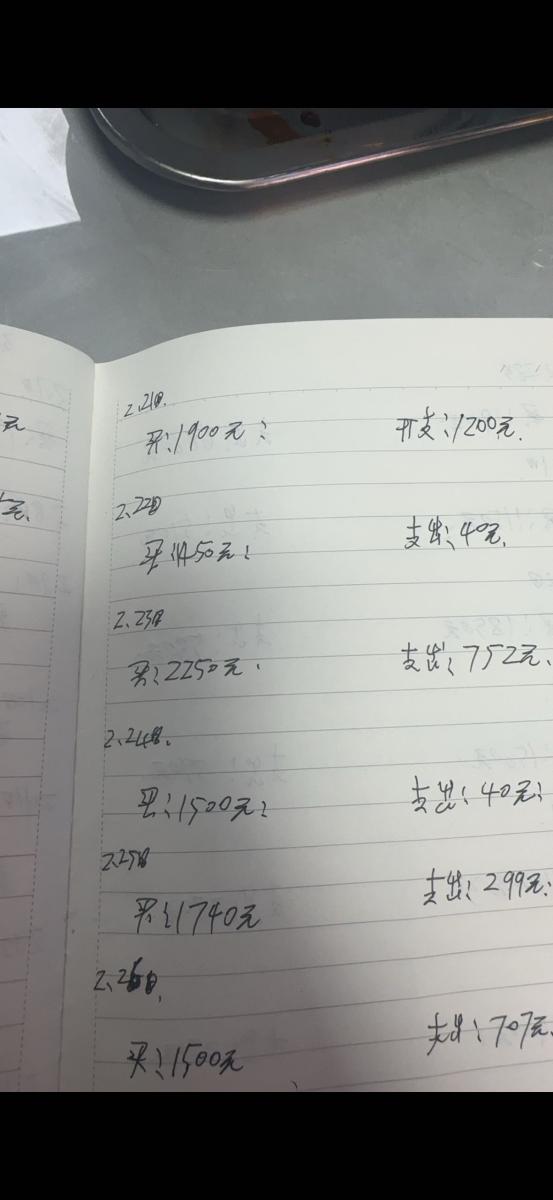 元
元.
2.21日.
买:1900元: 开支:1200元.
2.22日
买:1450元: 支出:40元.
2.23日
买:2250元. 支出:752元.
2.24日.
买:1500元: 支出:40元:
2.25日
买:1740元 支出:299元:
2.26日.
买:1500元 支出:707元.